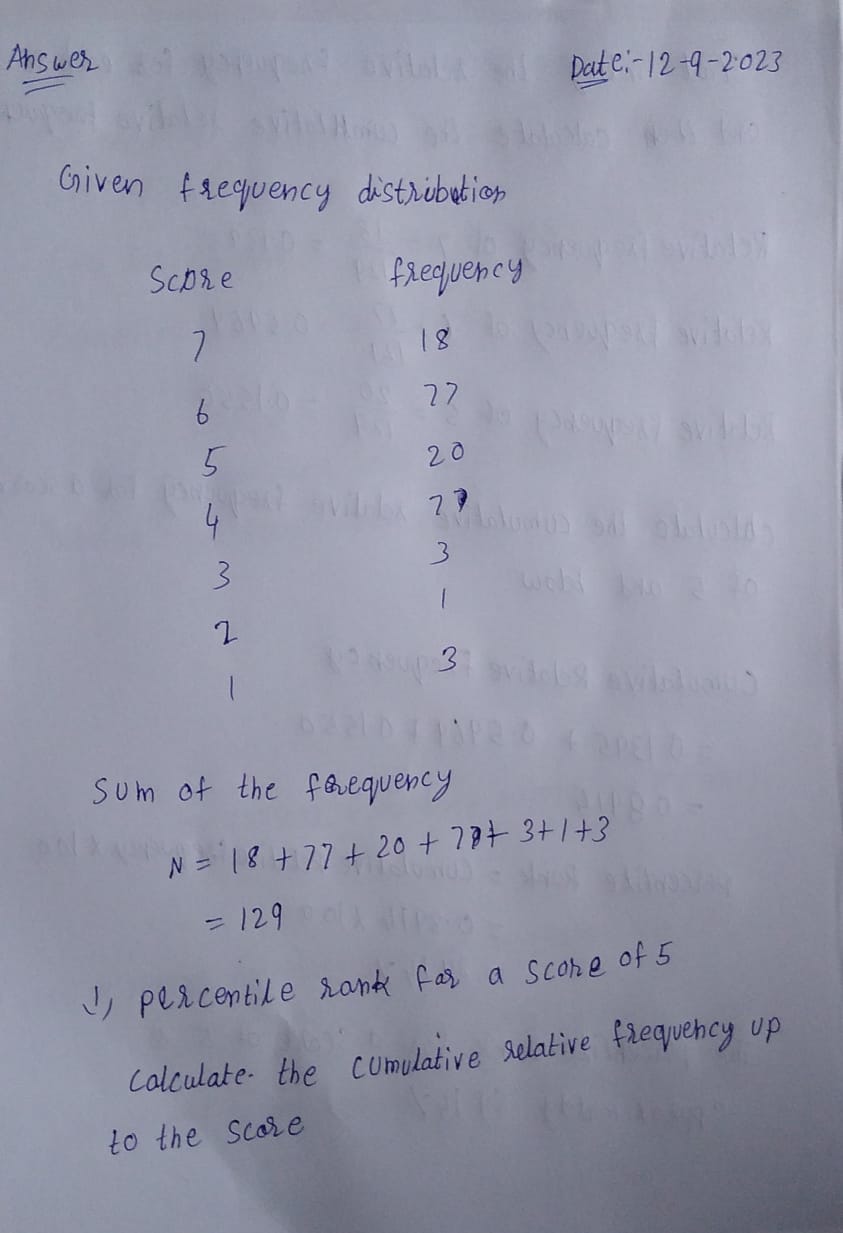 Answer Date:-12-9-2023
Given frequency distribution
Score frequency
7 18
6 77
5 20
4 7
3 3
2 1
1 3
Sum of the frequency
N = 18 + 77 + 20 + 7 + 3+1+3
= 129
1, percentile rank for a score of 5
Calculate the cumulative relative frequency up
to the score